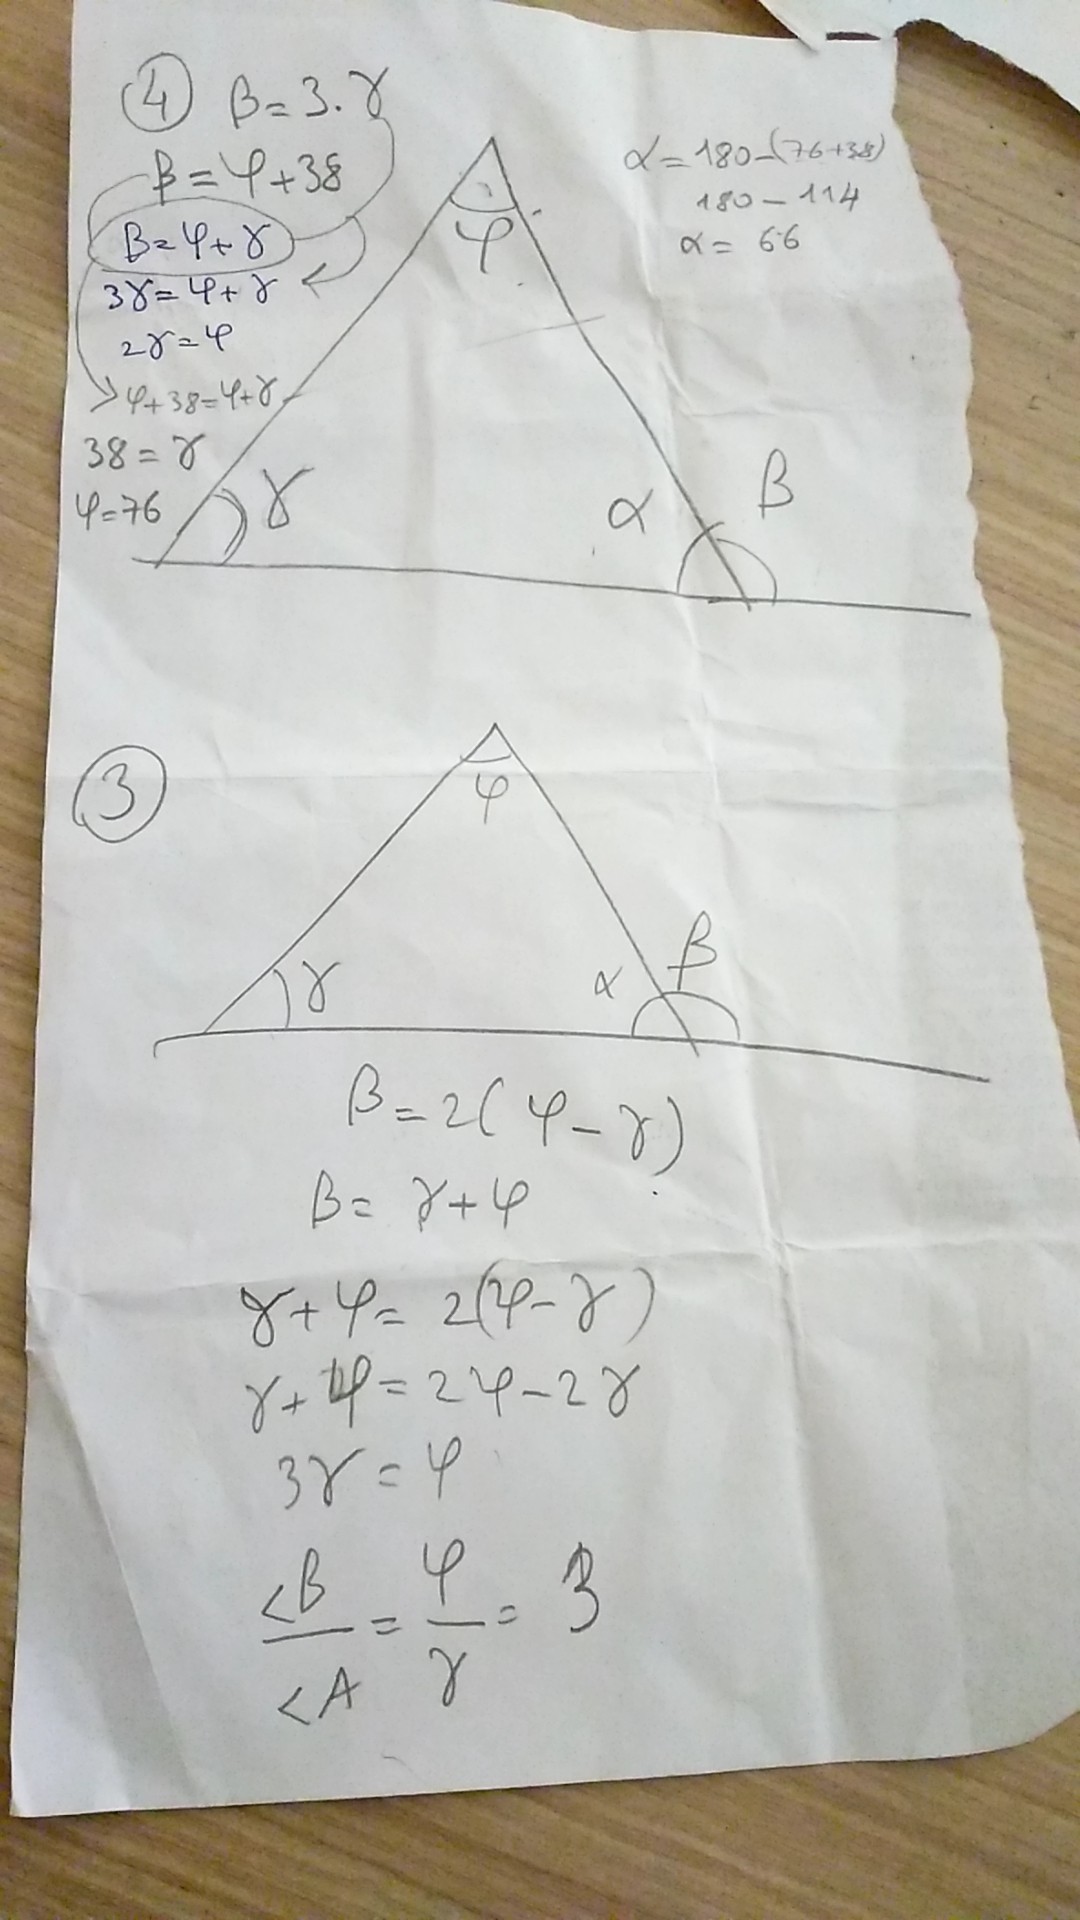 4
β = 3.γ
β = φ + 38
β = φ + γ
3γ = φ + γ
2γ = φ
φ + 38 = φ + γ
38 = γ
φ = 76
α = 180 - (76 + 38)
180 - 114
α = 66
φ
γ
α
β
3
φ
γ
α
β
β = 2(φ - γ)
β = γ + φ
γ + φ = 2(φ - γ)
γ + φ = 2φ - 2γ
3γ = φ
<B/<A = φ/γ = 3